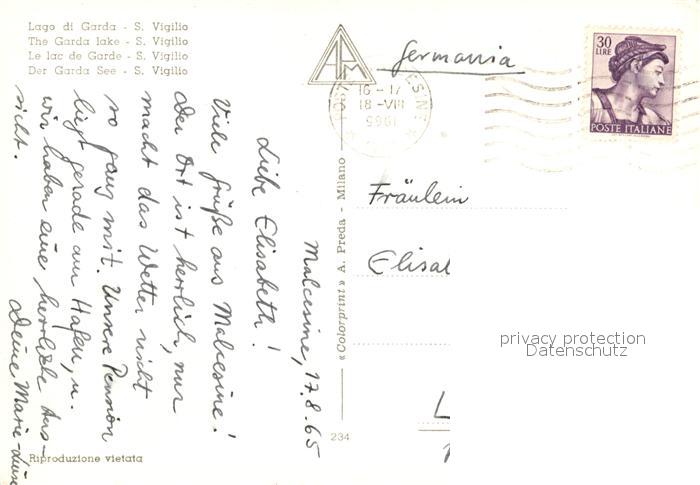 Lago di Garda - S. Vigilio
The Garda lake - S. Vigilio
Le lac de Garde - S. Vigilio
Der Garda See - S. Vigilio
Malcesine, 17.8.65
Liebe Elisabeth!
Viele Grüße aus Malcesine!
Der Ort ist herrlich, nur
macht das Wetter nicht
so ganz mit. Unsere Pension
liegt gerade am Hafen, u.
wir haben eine herrliche Aus-
sicht.
Deine Marie-Luise
Riproduzione vietata
« Colorprint » A. Preda - Milano
234
APM
Germania
16-17
18-VIII
30
LIRE
POSTE ITALIANE
Fräulein
Elisa
privacy protection
Datenschutz